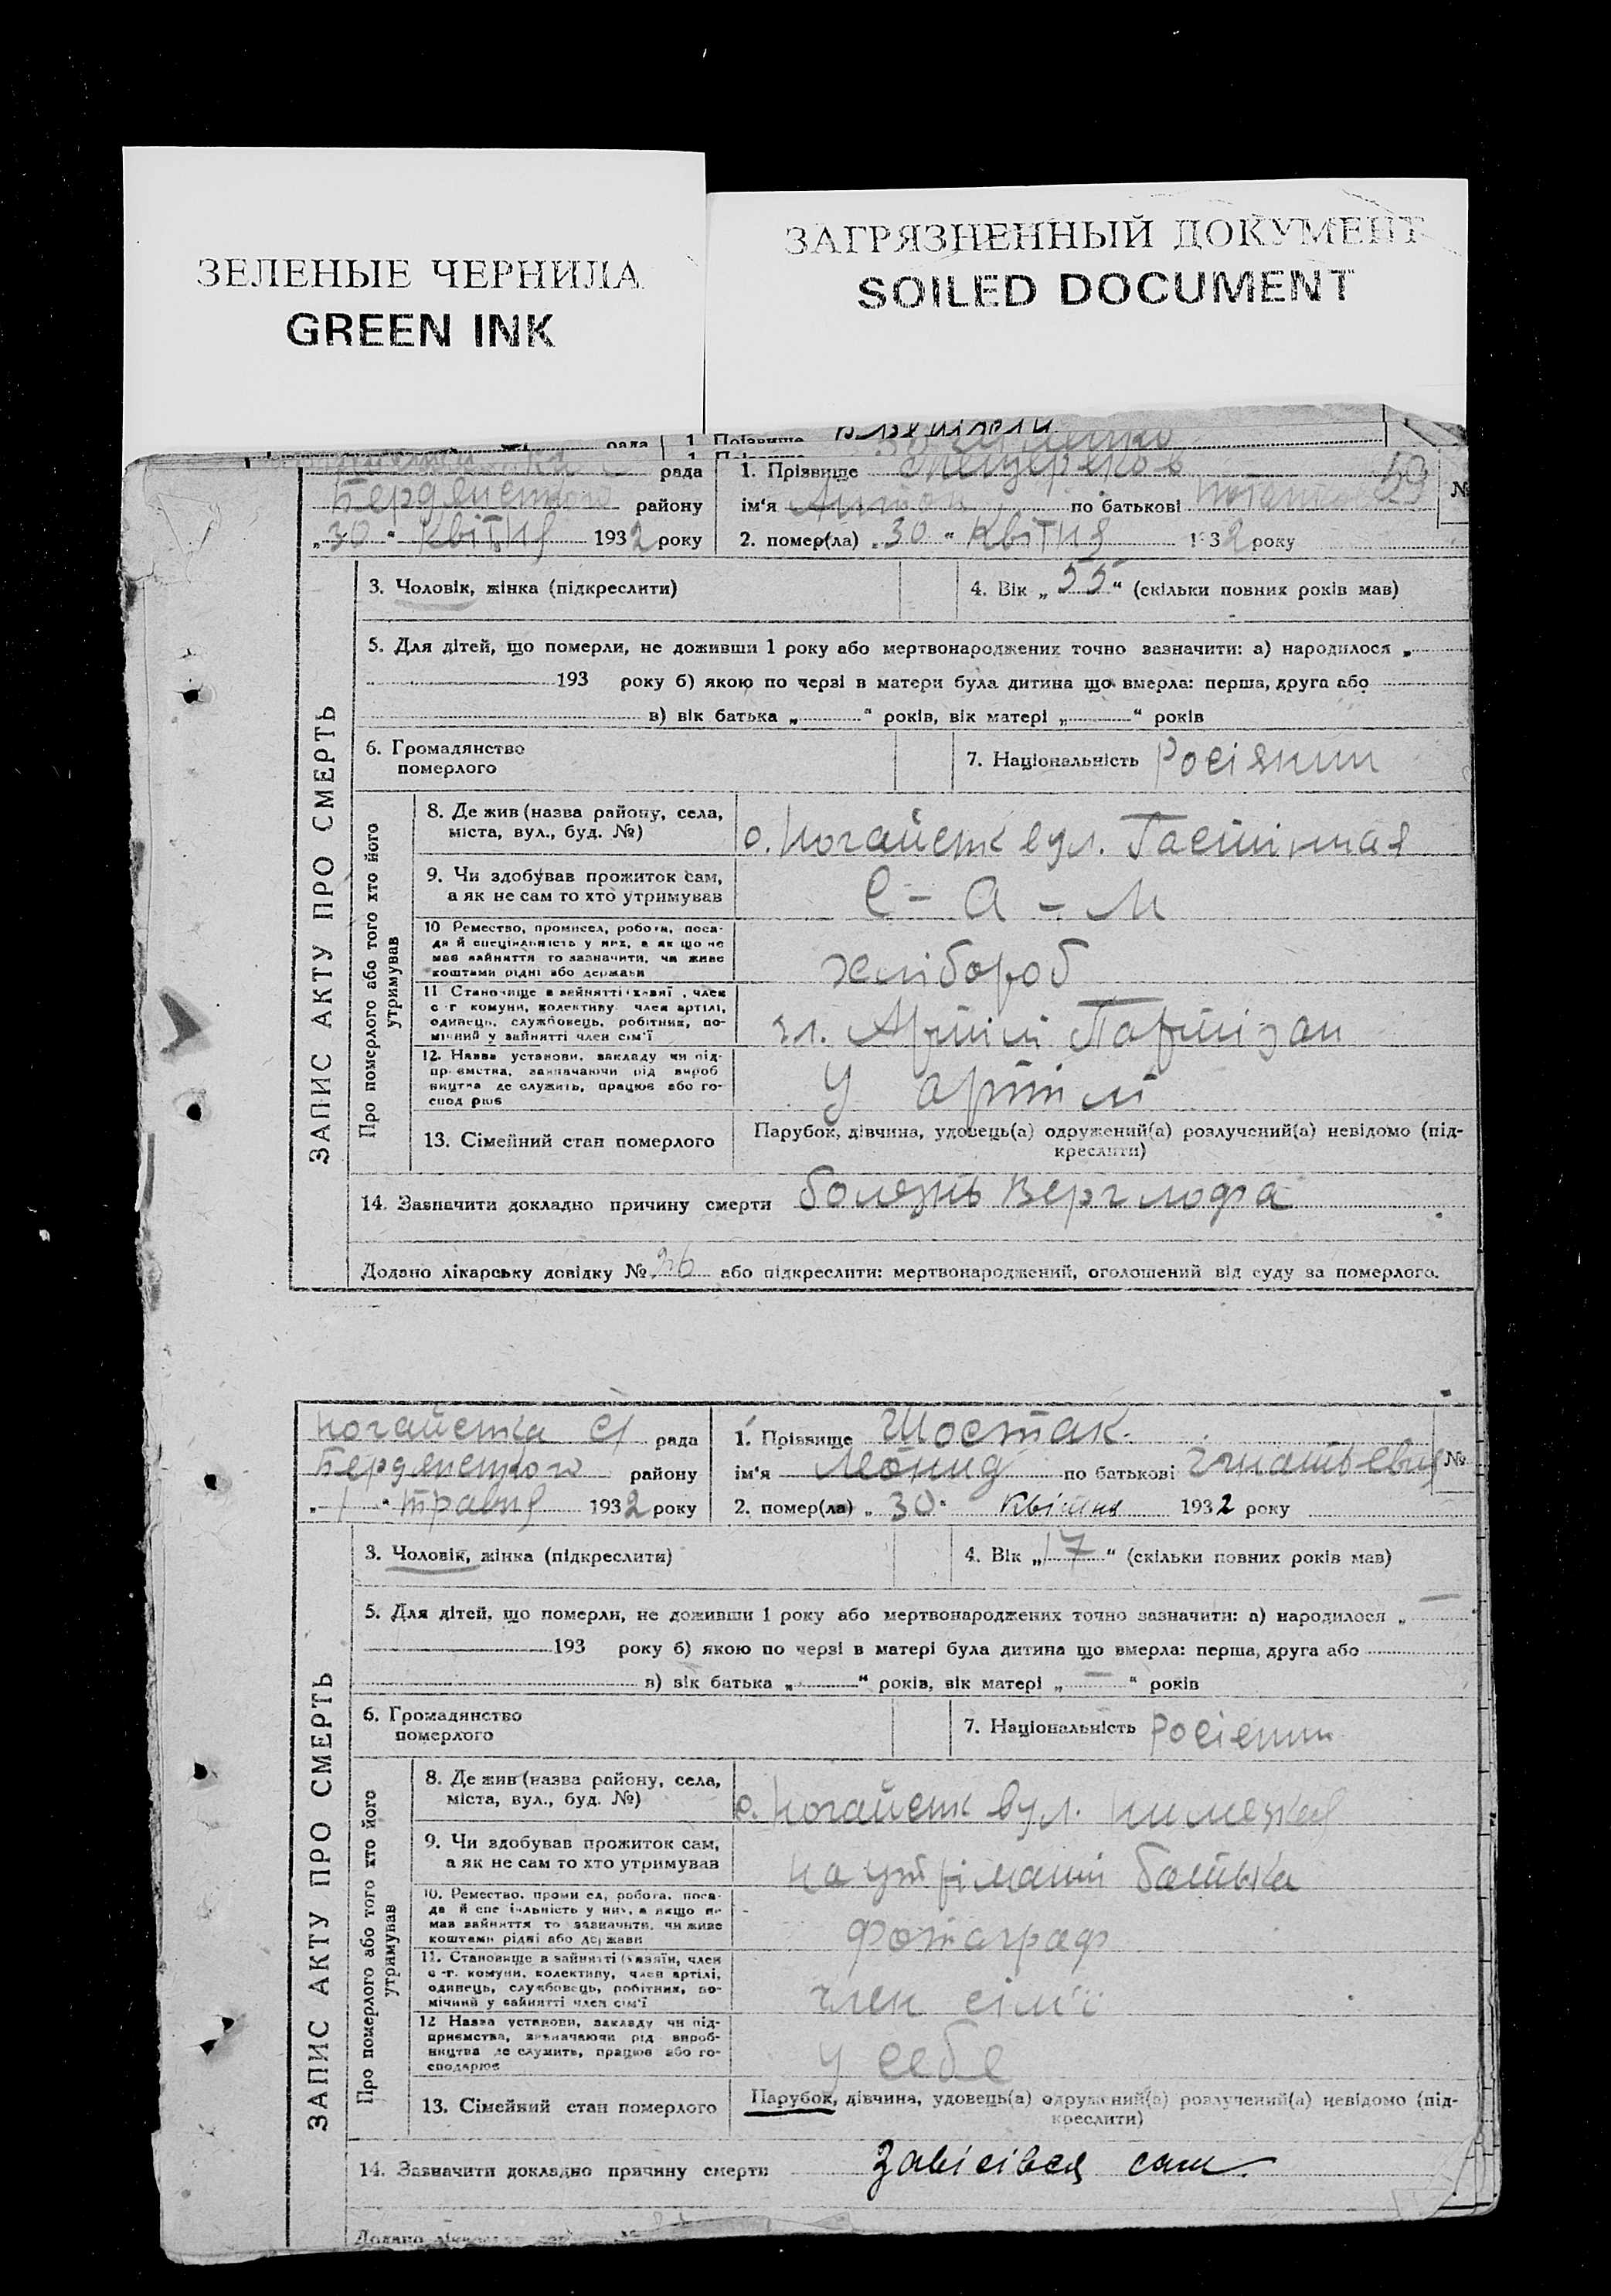 ЗЕЛЕНЫЕ ЧЕРНИЛА
GREEN INK
ЗАГРЯЗНЕННЫЙ ДОКУМЕНТ
SOILED DOCUMENT
рада 1. Прізвище
рада 1. Прізвище 53 №
Бердянського району ім'я Антон по батькові
„30“ Квітня 1932 року 2. помер(ла) „30“ Квітня 1932 року
ЗАПИС АКТУ ПРО СМЕРТЬ
3. Чоловік, жінка (підкреслити) 4. Вік „55“ (скільки повних років мав)
5. Для дітей, що померли, не доживши 1 року або мертвонароджених точно зазначити: а) народилося „
193 року б) якою по черзі в матери була дитина що вмерла: перша, друга або
в) вік батька „ “ років, вік матері „ “ років
6. Громадянство
померлого
7. Національність Росіянин
Про померлого або того хто його
утримував
8. Де жив (назва району, села,
міста, вул., буд. №)
с. Ногайськ вул.
9. Чи здобував прожиток сам,
а як не сам то хто утримував
С - а - м
10 Ремество, промисел, робота, поса-
да й спеціяльність у них, а як що не
має зайняття то зазначити, чи живе
коштами рідні або держави
хлібороб
11 Становище в зайнятті (хазяї , член
с-г комуни, колективу член артілі,
одинець, службовець, робітник, по-
мічний у зайнятті член сім'ї
чл. Артілі Партізан
12. Назва установи, закладу чи під-
приємства, зазначаючи рід вироб
ництва де служить, працює або го-
спод рює
У артілі
13. Сімейний стан померлого
Парубок, дівчина, удовець(а) одружений(а) розлучений(а) невідомо (під-
креслити)
14. Зазначити докладно причину смерти болезнь Верглофа
Додано лікарську довідку № 36 або підкреслити: мертвонароджений, оголошений від суду за померлого.
Ногайська с/ рада 1. Прізвище Шостак.
Бердянського району ім'я Леонид по батькові Гнатьевич №
„1“ травня 1932 року 2. помер(ла) „30“ Квітня 1932 року
ЗАПИС АКТУ ПРО СМЕРТЬ
3. Чоловік, жінка (підкреслити) 4. Вік „17“ (скільки повних років мав)
5. Для дітей, що померли, не доживши 1 року або мертвонароджених точно зазначити: а) народилося „
193 року б) якою по черзі в матері була дитина що вмерла: перша, друга або
в) вік батька „ “ років, вік матері „ “ років
6. Громадянство
померлого
7. Національність Росіенин
Про померлого або того хто його
утримував
8. Де жив (назва району, села,
міста, вул., буд. №)
с. Ногайськ вул.
9. Чи здобував прожиток сам,
а як не сам то хто утримував
на утріманні батька
10. Ремество, проми ел, робота, поса-
да й спе іяльність у них, а якщо не
має зайняття то зазначити, чи живе
коштами рідні або держави
фотограф
11. Становище в зайнятті (хазяїн, член
с-г. комуни, колективу, член артілі,
одинець, службовець, робітник, по-
мічний у зайнятті член сім'ї
член сім'ї
12 Назва установи, закладу чи під-
приємства, зазначаючи рід вироб-
ництва де служить, працює або го-
сподарює
у себе
13. Сімейний стан померлого
Парубок, дівчина, удовець(а) одружений(а) розлучений(а) невідомо (під-
креслити)
14. Зазначити докладно причину смерти завісівся сам.
Додано